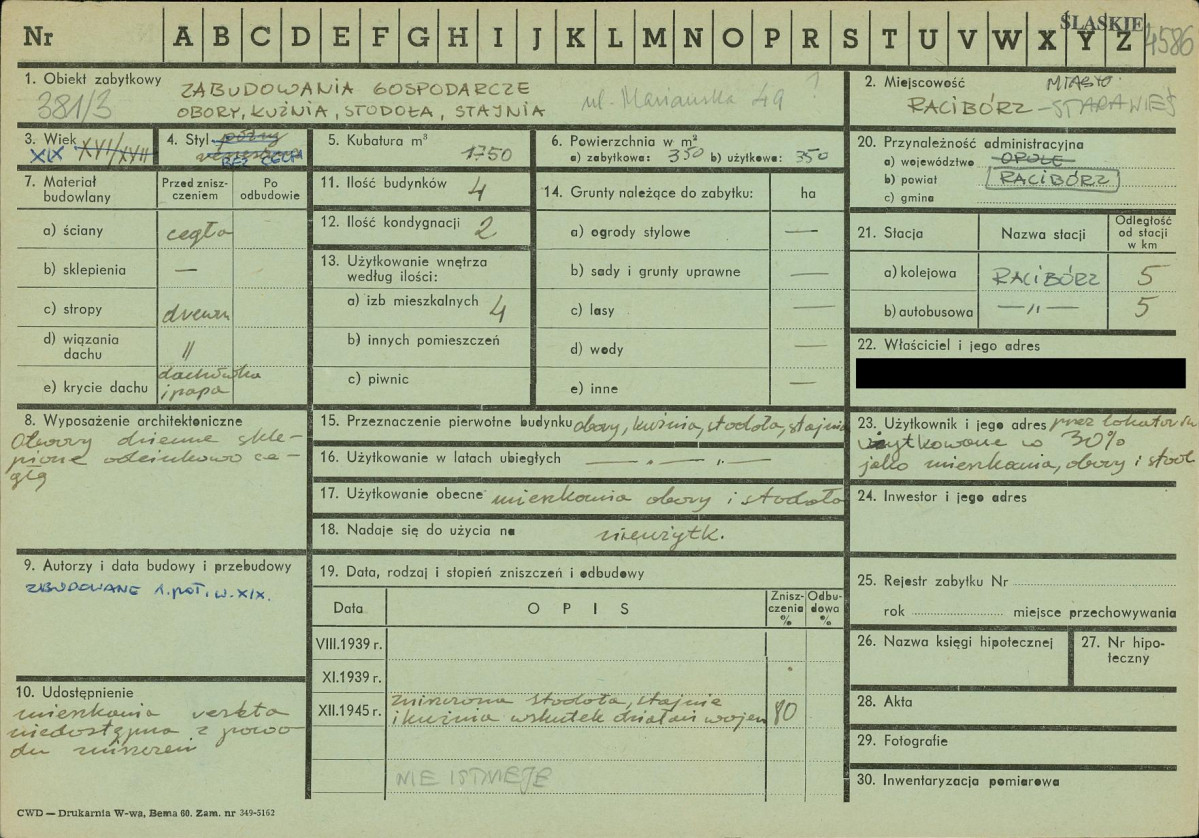 Nr A B C D E F G H I J K L M N O P R S T U V W X Y Z
ŚLĄSKIE
4586
1. Obiekt zabytkowy
381/3
ZABUDOWANIA GOSPODARCZE
OBORY, KUŹNIA, STODOŁA, STAJNIA
ul. Mariańska 49 ?
2. Miejscowość
MIASTO
RACIBÓRZ - STARAWIEŚ
3. Wiek
XIX XVI/XVII
4. Styl późny
BEZ CECH
5. Kubatura m³
1750
6. Powierzchnia w m²
a) zabytkowa: 350 b) użytkowa: 350
20. Przynależność administracyjna
a) województwo OPOLE
b) powiat RACIBÓRZ
c) gmina
7. Materiał budowlany
Przed znisz-
czeniem
Po
odbudowie
a) ściany cegła
b) sklepienia —
c) stropy drewn
d) wiązania
dachu "
e) krycie dachu dachówka
i papa
11. Ilość budynków 4
12. Ilość kondygnacji 2
13. Użytkowanie wnętrza
według ilości:
a) izb mieszkalnych 4
b) innych pomieszczeń
c) piwnic
14. Grunty należące do zabytku: ha
a) ogrody stylowe —
b) sady i grunty uprawne —
c) lasy —
d) wody —
e) inne —
21. Stacja Nazwa stacji
Odległość
od stacji
w km
a) kolejowa RACIBÓRZ 5
b) autobusowa —"— 5
22. Właściciel i jego adres
8. Wyposażenie architektoniczne
Otwory dzienne skle-
pione odcinkowo ce-
głą
15. Przeznaczenie pierwotne budynku obory, kuźnia, stodoła, stajnia
16. Użytkowanie w latach ubiegłych — " — " —
17. Użytkowanie obecne mieszkania obory i stodoła
18. Nadaje się do użycia na nieużytk.
23. Użytkownik i jego adres przez lokatorów
użytkowane w 30%
jako mieszkania, obory i stod
24. Inwestor i jego adres
9. Autorzy i data budowy i przebudowy
ZBUDOWANE 1. poł. w. XIX.
19. Data, rodzaj i stopień zniszczeń i odbudowy
Data OPIS
Znisz-
czenia
%
Odbu-
dowa
%
VIII.1939 r.
XI.1939 r.
XII.1945 r. zniszczona stodoła, stajnie
i kuźnia wskutek działań wojen 80
NIE ISTNIEJE
25. Rejestr zabytku Nr
rok miejsce przechowywania
26. Nazwa księgi hipotecznej
27. Nr hipo-
teczny
10. Udostępnienie
mieszkania reszta
niedostępna z powo-
du zniszczeń
28. Akta
29. Fotografie
30. Inwentaryzacja pomiarowa
CWD — Drukarnia W-wa, Bema 60. Zam. nr 349-5162